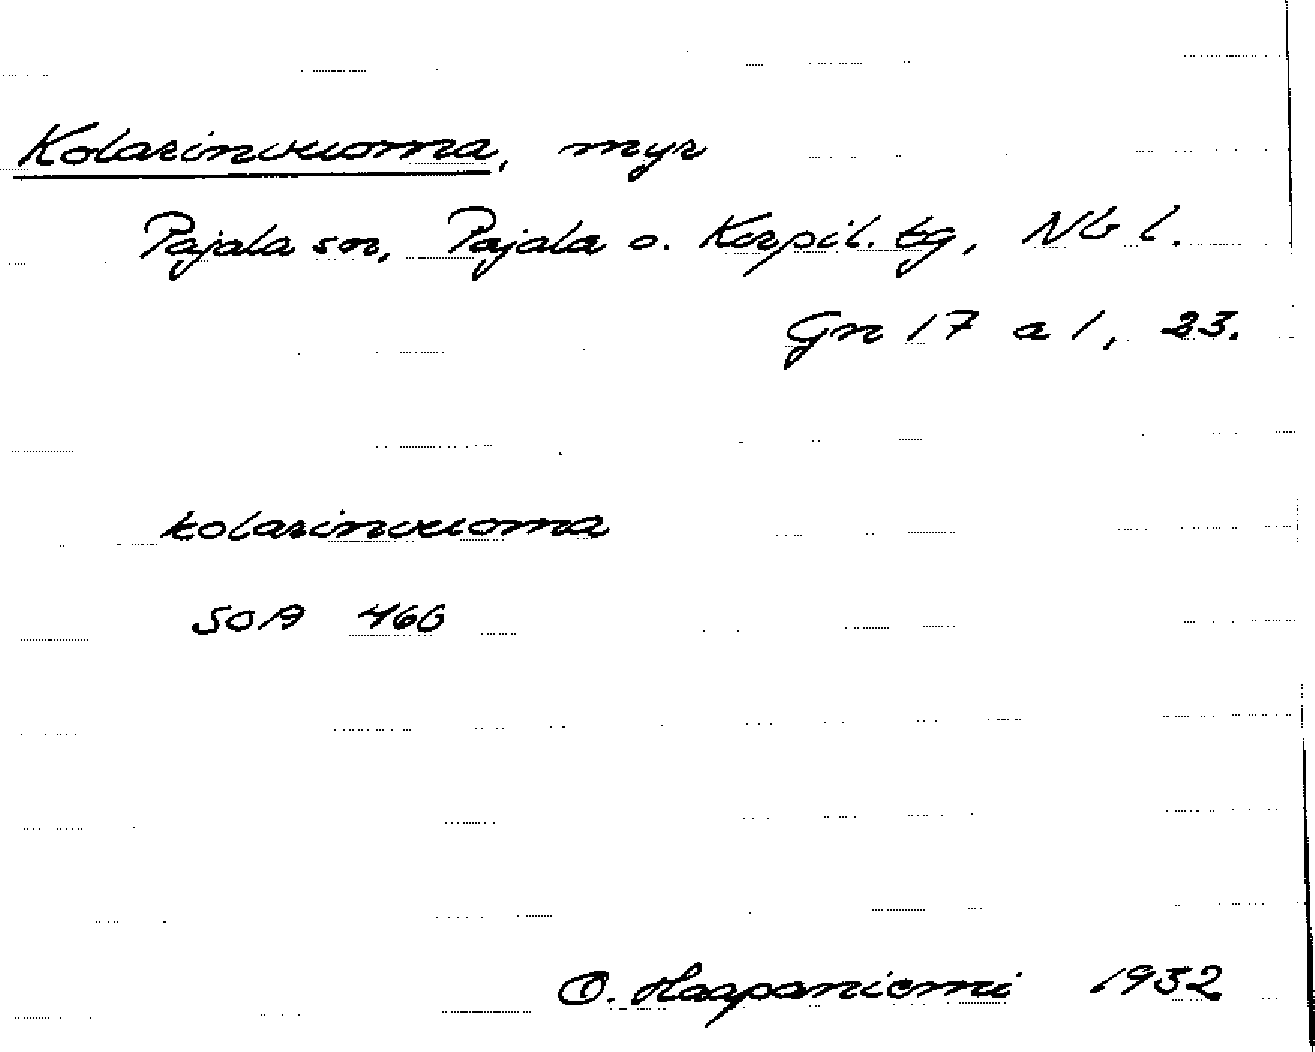 Kolarinvuoma, myr
Pajala sn, Pajala o. Korpil. tg, Nb l.
Gn 17 a 1, 23.
kolarinvuoma
SOA 460
O. Haapaniemi 1932